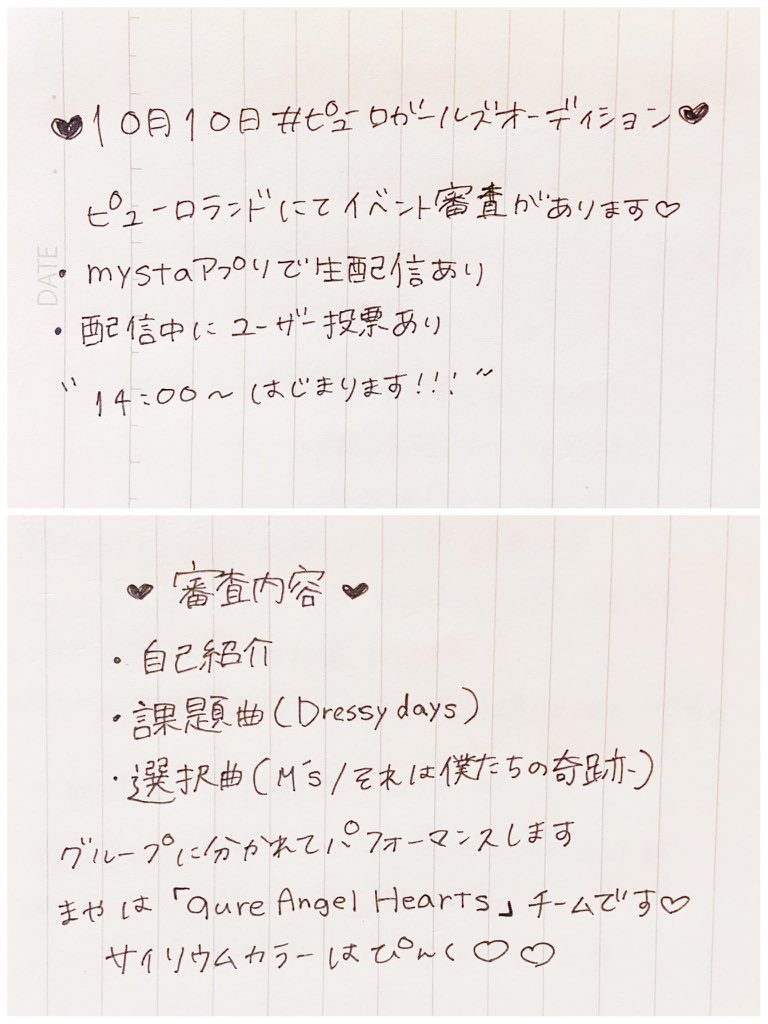 ♥10月10日#ピューロガールズオーディション♥
DATE
ピューロランドにてイベント審査があります♡
・mystaアプリで生配信あり
・配信中にユーザー投票あり
"14:00〜はじまります!!!"
♥審査内容♥
・自己紹介
・課題曲(Dressy days)
・選択曲(M's/それは僕たちの奇跡)
グループに分かれてパフォーマンスします
まやは「qure Angel Hearts」チームです♡
サイリウムカラーはぴんく♡♡